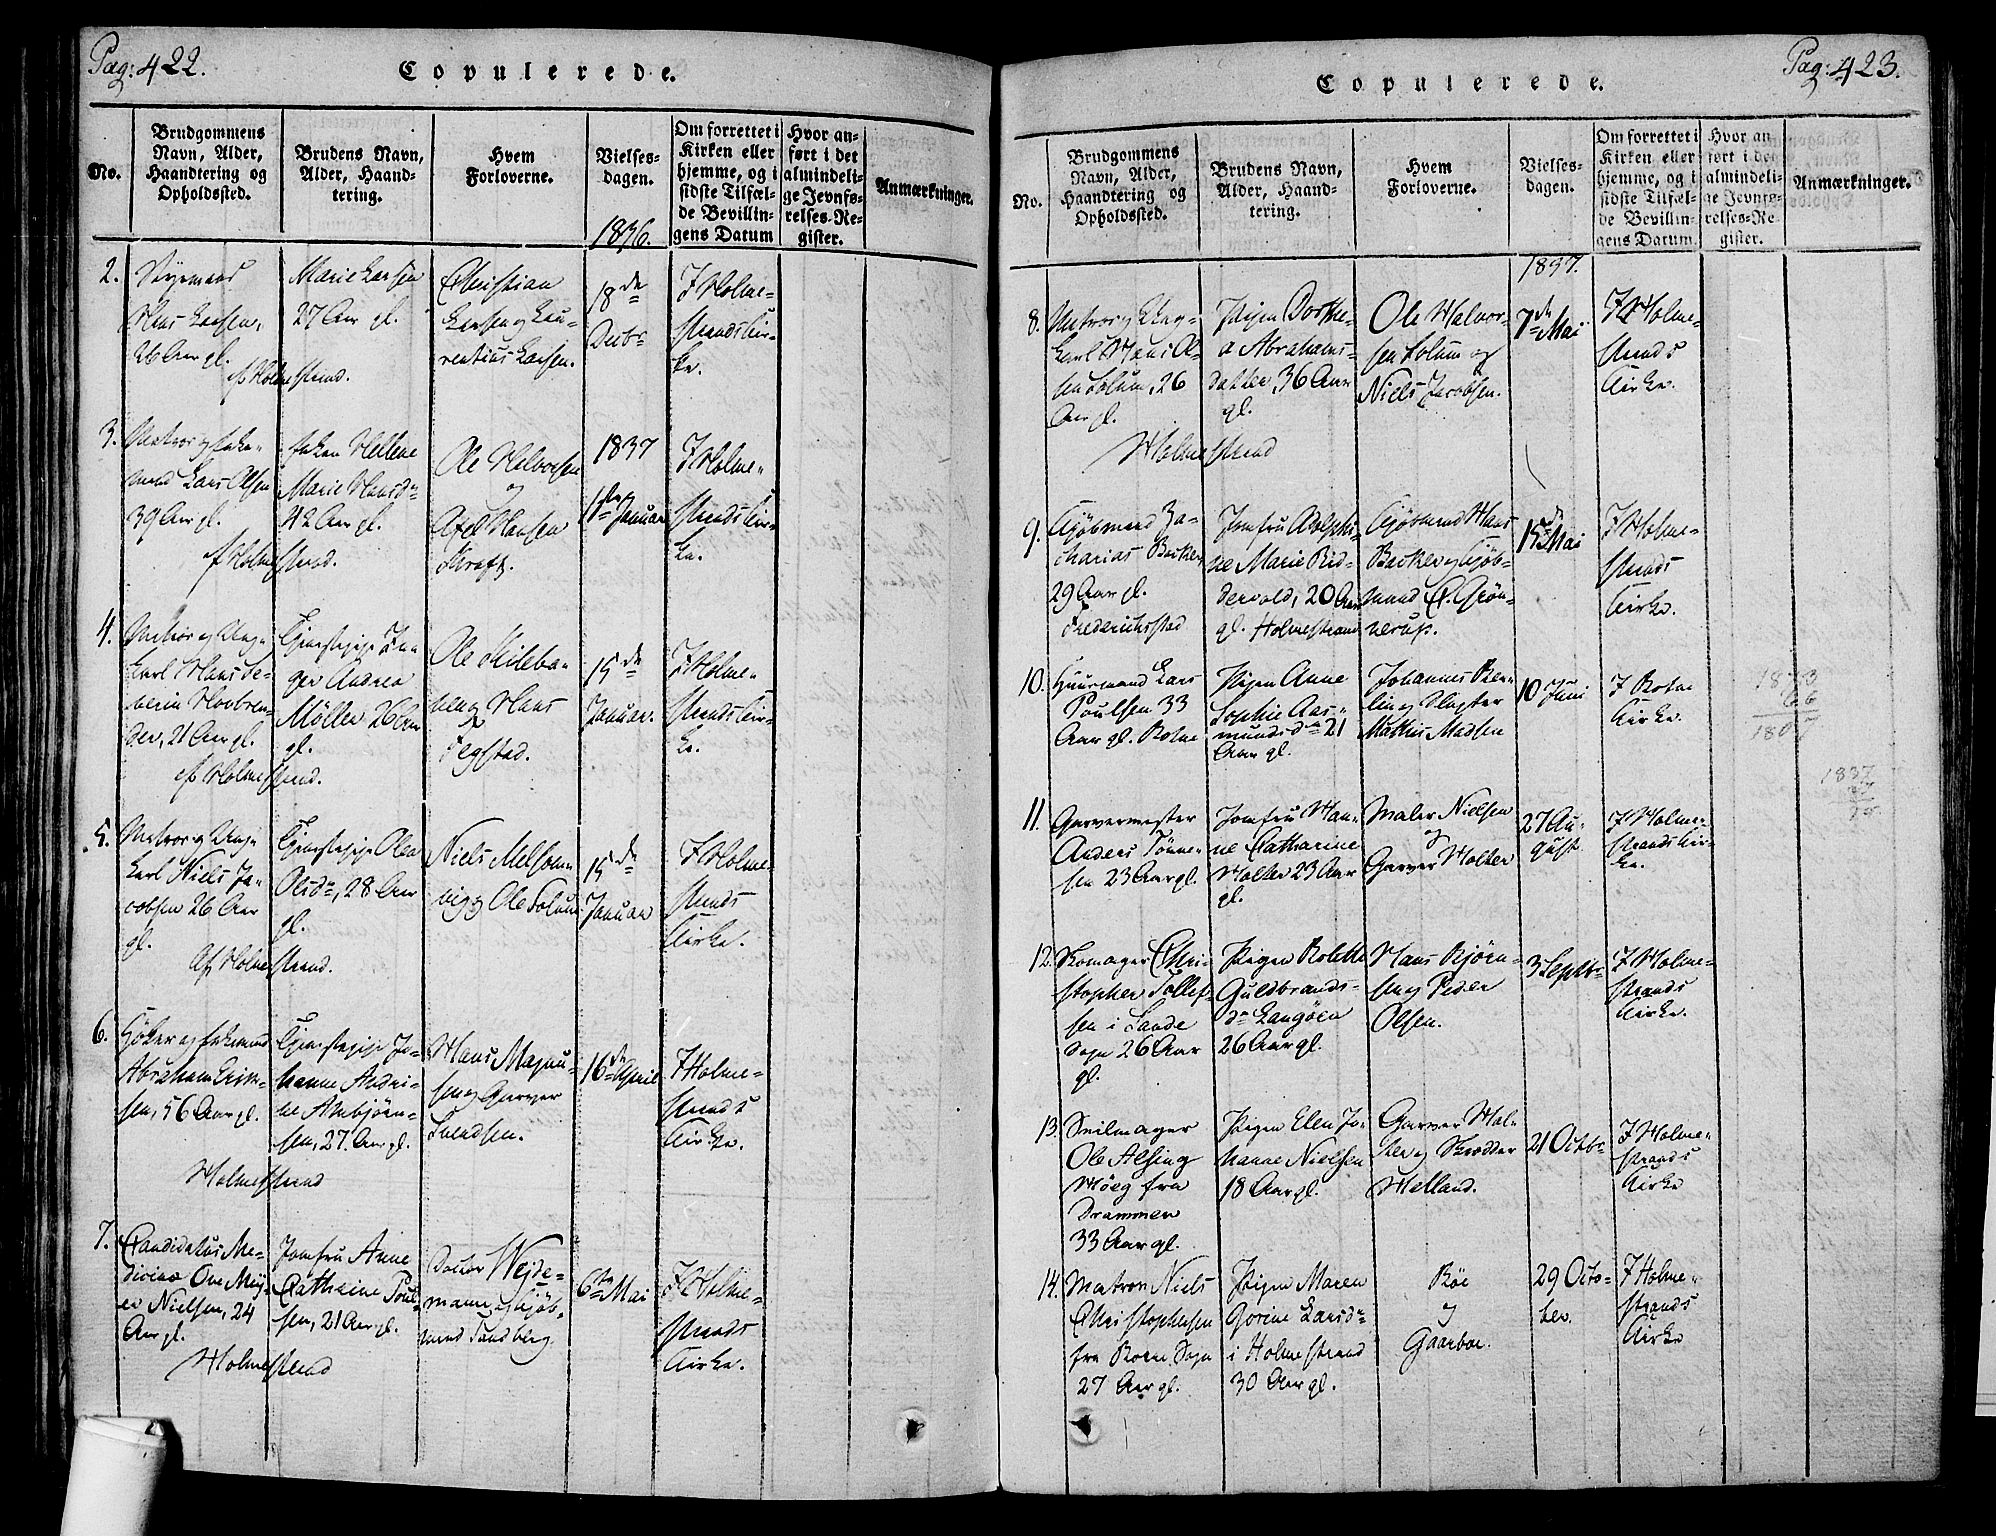 Pag: 422.
Copulerede.
No.
Brudgommens
Navn, Alder,
Haandtering og
Opholdssted.
Brudens Navn,
Alder, Haand-
tering.
Hvem
Forloverne.
Vielses-
dagen.
1836.
Om forrettet i
Kirken eller
hjemme, og i
sidste Tilfæl-
de Bevillin-
gens Datum
Hvor an-
ført i det
almindeli-
ge Jevnfø-
relses-Re-
gister.
Anmærkninger.
2.
Styrmand
Hans Larsen,
26 Aar gl.
af Holmestrand.
Marie Larsen
27 Aar gl.
Christian
Larsen og Lau-
rentius Larsen.
18de
Decbr
I Holme-
strands Kir-
ke.
3.
Matros og Enke-
mand Lars Olsen
39 Aar gl.
af Holmestrand.
Enken Hellene
Marie Hansdr
42 Aar gl.
Ole Halvorsen
og
Axel Hansen
Kraft.
1837
1ste Januar
I Holme-
strands Kir-
ke.
4.
Matros og Ung-
karl Hans Se-
verin Hovbren-
der, 21 Aar gl.
af Holmestrand.
Tjenestepige In-
ger Andrea
Møller 26 Aar
gl.
Ole Kileba-
ken og Hans
Tegstad.
15de
Januar.
I Holme-
strands Kir-
ke.
5.
Matros og Ung-
karl Niels Ja-
cobsen 26 Aar
gl.
Af Holmestrand.
Tjenestepige Olea
Olsdr, 28 Aar
gl.
Niels Melsom-
vig og Ole Solum
15de
Januar
I Holme-
strands
Kirke.
6.
Høker og Enkemand
Abraham Erik-
sen, 56 Aar gl.
Holmestrand
Tjenestepige Jo-
hanne Andri-
ne Ambjørn-
sen, 27 Aar gl.
Hans Magnu-
sen og Garver
Svendsen.
16de April
I Holme-
strands
Kirke.
7.
Candidatus Me-
dicinæ Ove Mey-
er Nielsen, 24
Aar gl.
Holmestrand
Jomfru Anne
Cathrine Poul-
sen, 21 Aar gl.
Doctor Wejde-
mann og Kjøb-
mand Sundberg
6te Mai
I Holme-
strands
Kirke.
Pag: 423.
Copulerede.
No.
Brudgommens
Navn, Alder,
Haandtering og
Opholdssted.
Brudens Navn,
Alder, Haand-
tering.
Hvem
Forloverne.
Vielses-
dagen.
1837.
Om forrettet i
Kirken eller
hjemme, og i
sidste Tilfæl-
de Bevillin-
gens Datum.
Hvor an
ført i det
almindeli-
ge Jevnfø-
relses-Re
gister.
Anmærkninger.
8.
Matros og Ung-
karl Hans Ol-
sen Solum, 26
Aar gl.
Holmestrand
Pigen Dorthe-
a Abrahams-
datter, 36 Aar
gl.
Ole Halvor-
sen Solum og
Niels Jacobsen.
7de Mai
I Holme-
strands
Kirke.
9.
Kjøbmand Za-
charias Backer
29 Aar gl.
Frederichsstad
Jomfru Adolphi-
ne Marie Rid-
dervold, 20 Aar
gl. Holmestrand
Kjøbmand Hans
Backer og Kjøb-
mand C. Grön-
nerup.
15de Mai
I Holme-
strands
Kirke.
10.
Huusmand Lars
Poulsen 33
Aar gl. Botne
Pigen Anne
Sophie Aas-
mundsdr 21
Aar gl.
Johannes Ber-
lin og Slagter
Mathis Madsen
10 Juni
I Botne
Kirke.
1873
66
1807
11.
Garvermester
Anders Tønne-
sen 23 Aar gl.
Jomfru Han-
ne Catharine
Holter 23 Aar
gl.
Maler Nielsen
og
Garver Holter
27 Au-
gust.
I Holme-
strands Kir-
ke.
1837
12.
Skomager Chri-
stopher Tollef-
sen i Sande
Sogn 26 Aar
gl.
Pigen Rolette
Guldbrands-
dr Langöen
26 Aar gl.
Hans Bjørn-
sen og Peder
Olsen.
3 Septbr
I Holme-
strands
Kirke.
13.
Seilmager
Ole Alsing
Höeg fra
Drammen
33 Aar gl.
Pigen Elen Jo-
hanne Nielsen
18 Aar gl.
Garver Hol-
ter og Skrædder
Helland.
21 Octbr
I Holme-
strands
Kirke
14.
Matros Niels
Christophersen
fra Botne Sogn
27 Aar gl.
Pigen Maren
Gorine Larsdr
i Holmestrand
30 Aar gl.
Böe
og
Gaarboe.
29 Octo-
ber.
I Holme-
strands
Kirke